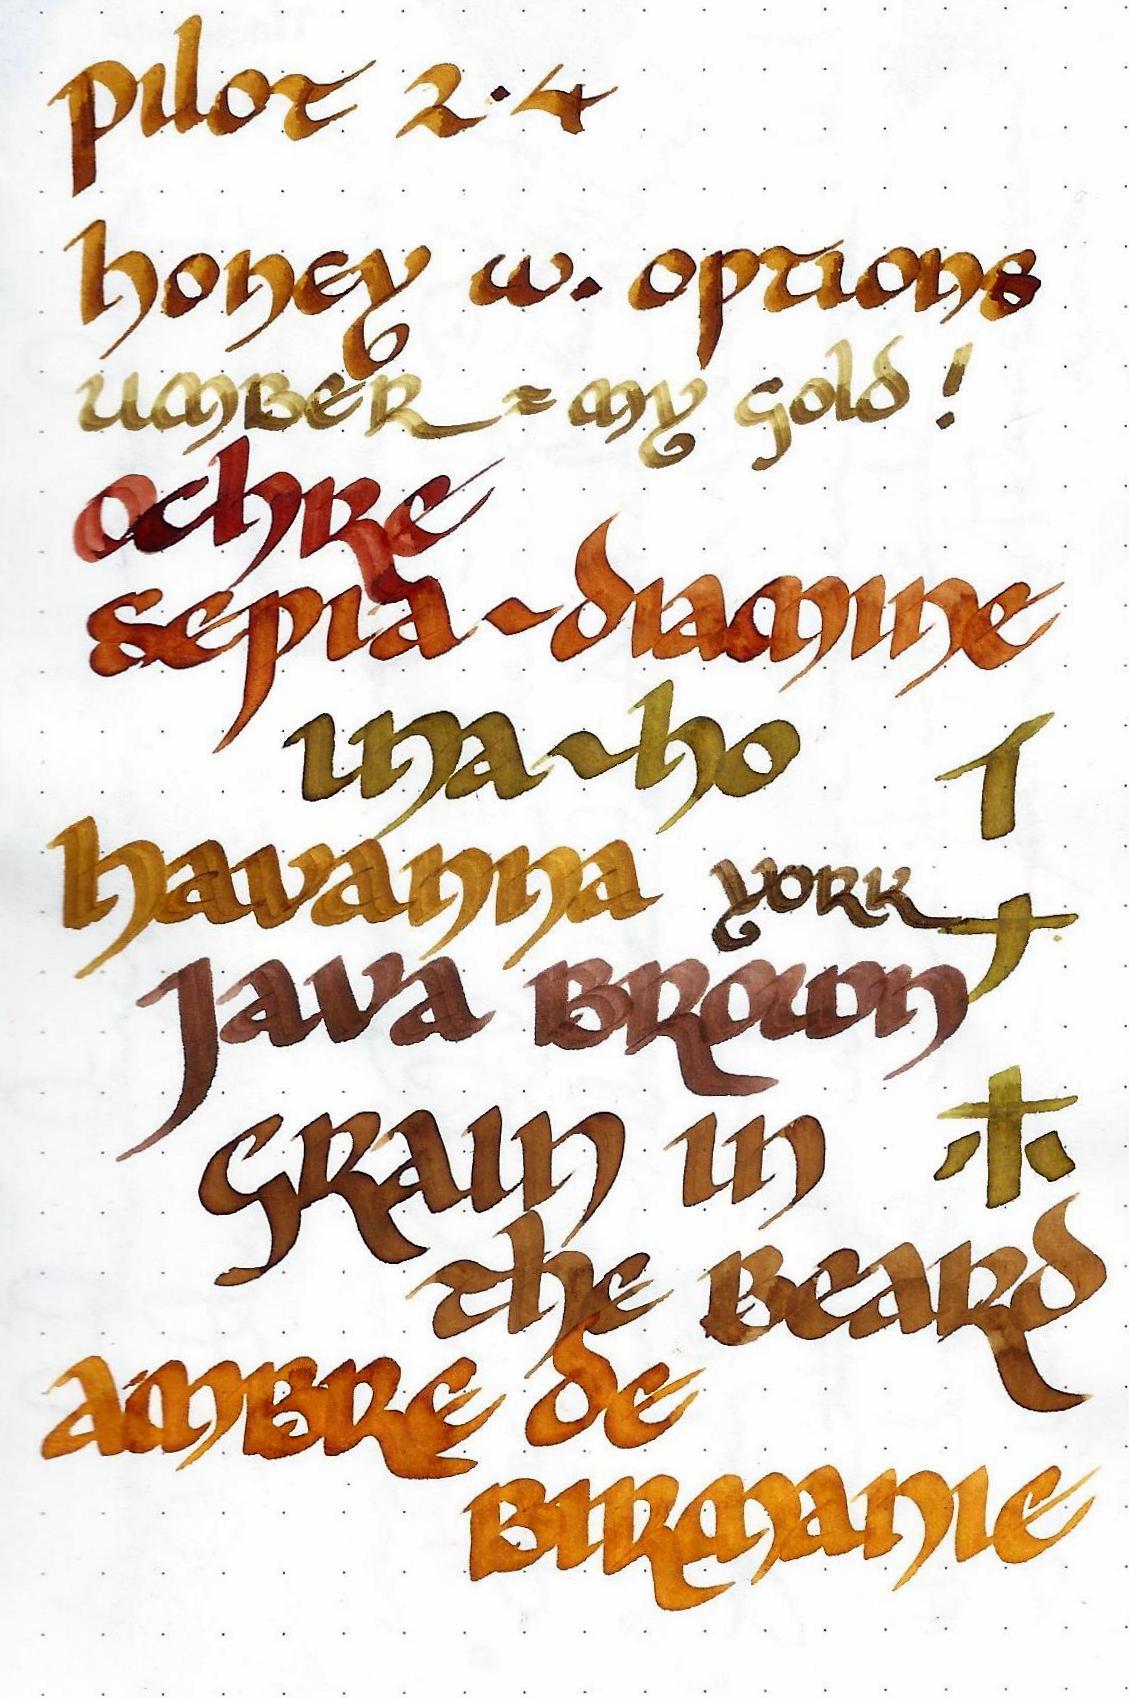 pilot 2·4
honey w. options
umber = my gold!
ochre
sepia ~ diamine
ina~ho
イナホ
havanna york
java brown
grain in
the beard
ambre de
birmanie